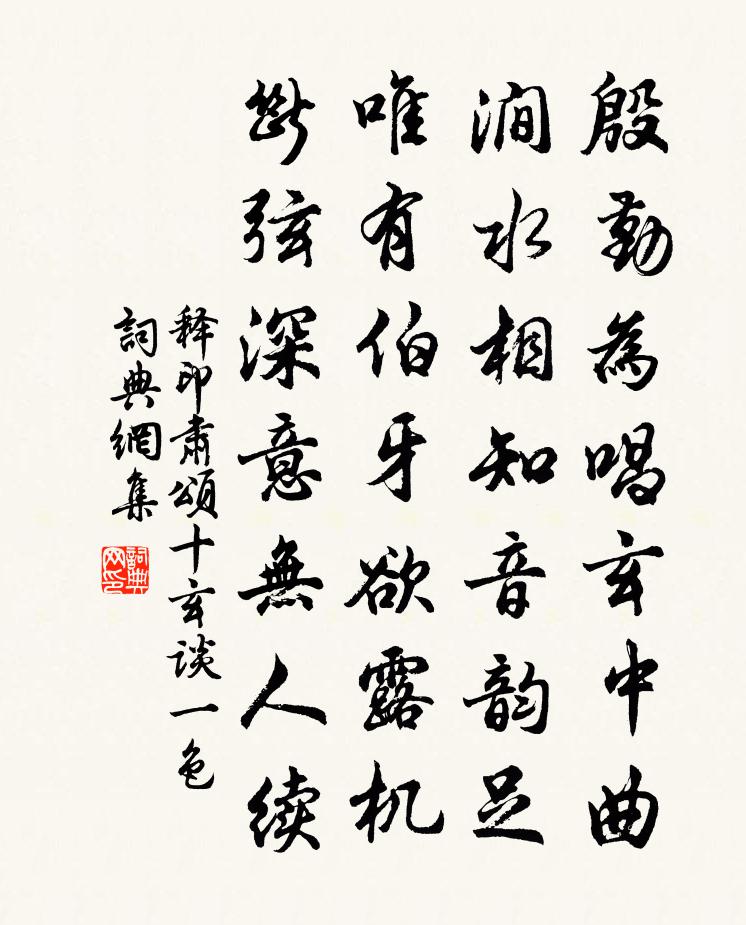 殷勤為唱玄中曲
澗水相知音韵足
唯有伯牙欲露机
斷弦深意無人续
释印肃頌十玄谈一色
詞典網集
詞典网印